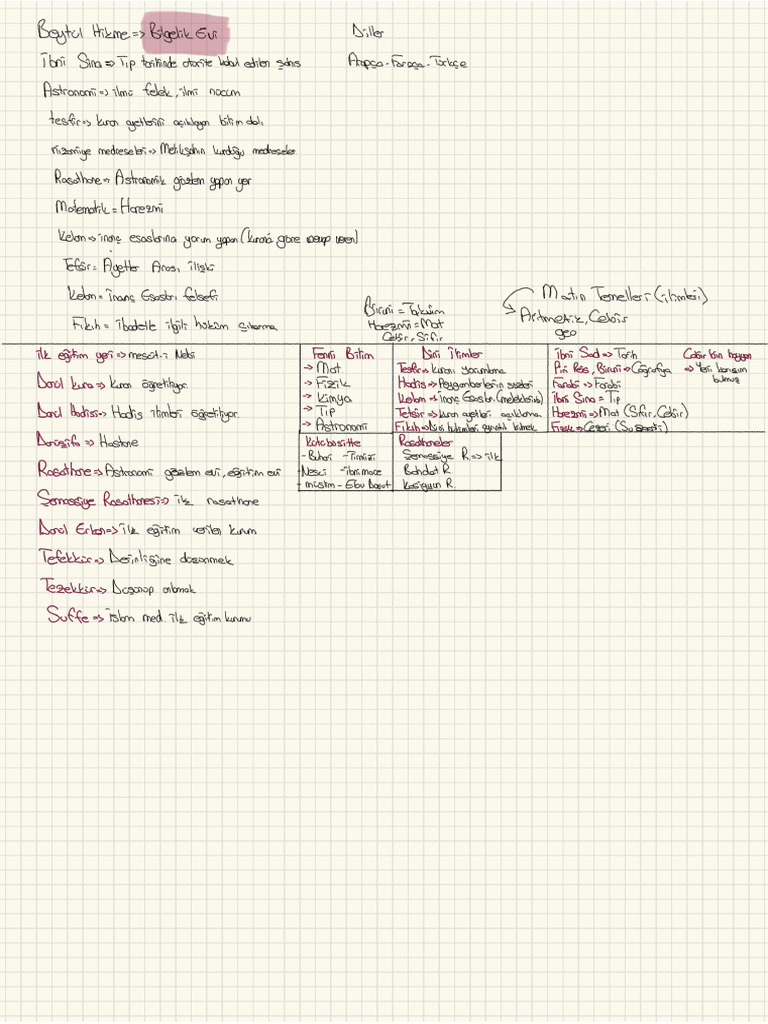 Beytül Hikme => Bilgelik Evi
Diller
İbni Sina => Tıp tarihinde otorite kabul edilen şahıs
Arapça - Farsça - Türkçe
Astronomi => ilmü felek, ilmi nücum
tesfir => kuran ayetlerini açıklayan bilim dalı
nizamiye medreseleri => Melikşahın kurduğu medreseler
Rasathane => Astronomik gözlem yapan yer
Matematik = Harezmi
Kelam => inanç esaslarına yorum yapan (kurana göre cevap veren)
Tefsir = Ayetler Arası ilişki
Kelam = İnanç Esasları felsefi
Fıkıh = ibadetle ilgili hüküm çıkarma
Biruni = Takvim
Harezmi = Mat
Cebir, Sıfır
Matin Temelleri (ilimleri)
Aritmetik, Cebir
geo
ilk eğitim yeri => mescit-i Nebi
Darul kurra => kuran öğretiliyor.
Darul Hadis => Hadis ilimleri öğretiliyor.
Darüşşifa => Hastane
Rasathane => Astronomi gözlem evi, eğitim evi
Şemassiye Rasathanesi => ilk rasathane
Darul Erkam => ilk eğitim verilen kurum
Tefekkür => Derinliğine düşünmek
Tezekkür => Düşünüp anlamak
Suffe => islam med. ilk eğitim kurumu
Fenni Bilim
-> Mat
-> Fizik
-> Kimya
-> Tıp
-> Astronomi
Dini İlimler
Tesfir => kuranı yorumlama
Hadis => Peygamberlerin sözleri
Kelam => inanç Esasları (meleklerde)
Tefsir => kuran ayetleri açıklama
Fıkıh => Dini hükümleri bilmek
İbni Sad => Tarih
Piri Reis, Biruni => Coğrafya
Farabi => Farabi
İbni Sina = Tıp
Harezmi => Mat (Sıfır, Cebir)
Fizik => Cezeri (Su saati)
Cabir bin hayyan
=> Yeni
bulmuş
Kütübüsitte
- Buhari - Tirmizi
- Nesei - ibni mace
- müslim - Ebu Davut
Rasathaneler
Şemassiye R. => ilk
Bahdat R.
Kasiyyun R.